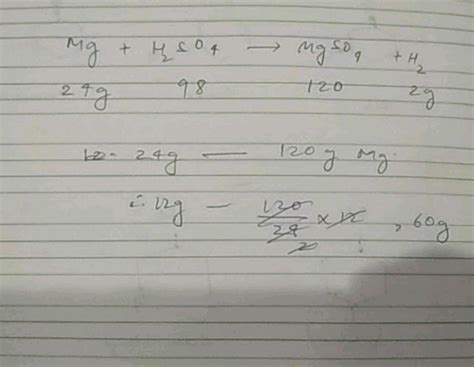 Mg + H₂SO₄ → MgSO₄ + H₂
24g 98 120 2g
12. 24g — 120g Mg.
∴ 12g — 120/24 × 12 , 60g
2